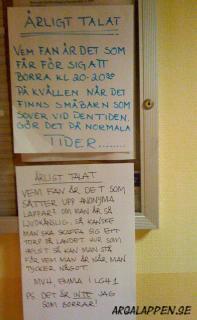 ÄRLIGT TALAT
VEM FAN ÄR DET SOM
FÅR FÖR SIG ATT
BORRA KL 20-20³⁰
PÅ KVÄLLEN NÄR DET
FINNS SMÅBARN SOM
SOVER VID DEN TIDEN.
GÖR DET PÅ NORMALA
TIDER........
ÄRLIGT TALAT
VEM FAN ÄR DET SOM
SÄTTER UPP ANONYMA
LAPPAR? OM MAN ÄR SÅ
LJUDKÄNSLIG, SÅ KANSKE
MAN SKA SKAFFA SIG ETT
TORP PÅ LANDET. HUR SOM
HELST SÅ KAN MAN STÅ
FÖR VEM MAN ÄR NÄR MAN
TYCKER NÅGOT.
MVH EMMA I LGH 1
PS. DET ÄR INTE JAG
SOM BORRAR!
ARGALAPPEN.SE